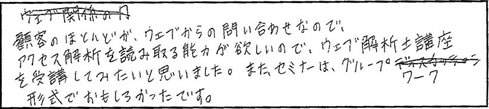 顧客のほとんどが、ウェブからの問い合わせなので、
アクセス解析を読み取る能力が欲しいので、ウェブ解析士講座
を受講してみたいと思いました。また、セミナーは、グループ
ワーク
形式でおもしろかったです。